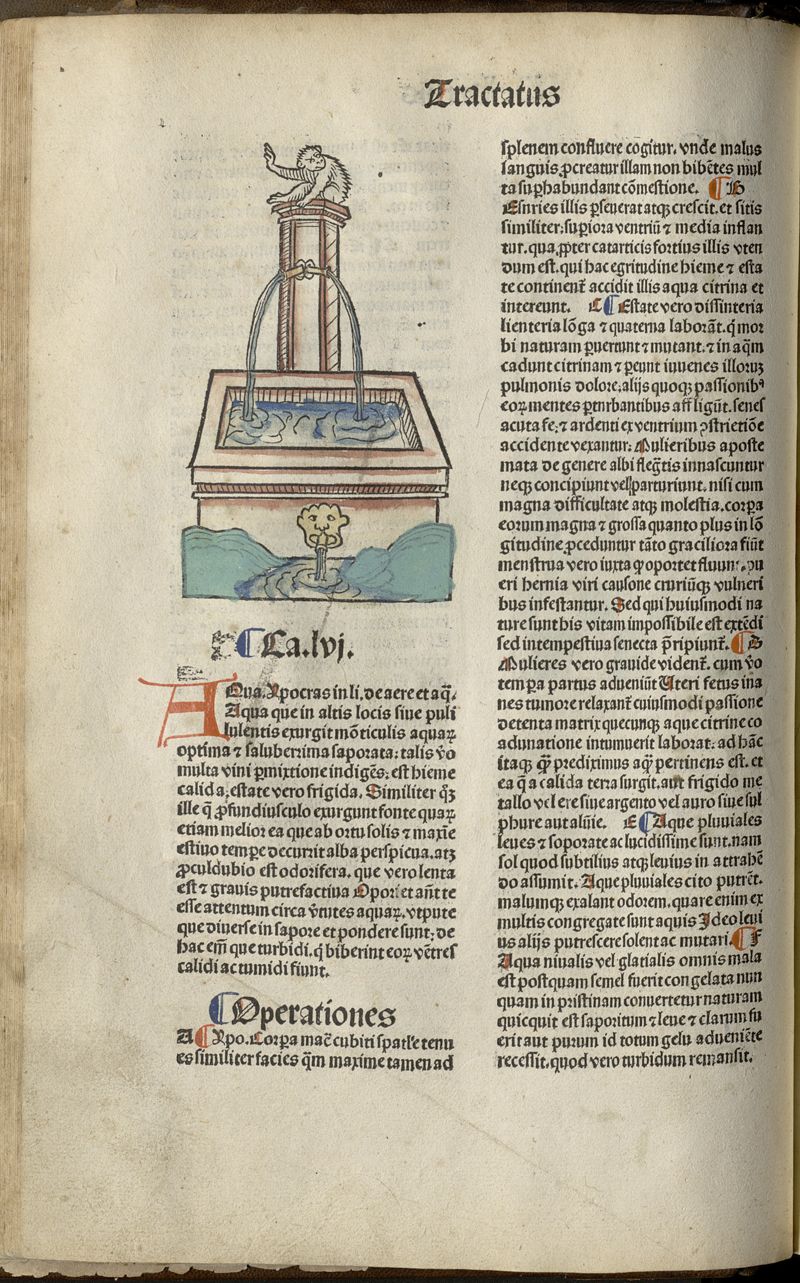 Tractatus
Ca.lvj.
AQua. Ypocras in li. de aere et aq̃.
Aqua que in altis locis siue puli
lulentis exurgit mõticulis aquaꝝ
optima ⁊ saluberrima saporata: talis v̊o
multa vini ꝑmixtione indigẽs: est hieme
calida, estate vero frigida. Similiter q̃ꝫ
ille q̃ ꝓfundiusculo exurgunt fonte quaꝝ
etiam melior ea que ab ortu solis ⁊ maxĩe
estiuo tempe decurrit alba perspicua. atꝫ
ꝓculdubio est odorifera. que vero lenta
est ⁊ grauis putrefactiua Oportet añt te
esse attentum circa v̊tutes aquaꝝ. vtpute
que diuerse in sapore et pondere sunt: de
hac em̃ que turbidi. q̃ biberint eoꝝ vẽtres
calidi ac tumidi fiunt.
Operationes
A Ypo. Corꝑa mac̃ cubiti spatl'e tenu
es similiter facies q̃m maxime tamen ad
splenem confluere cogitur. vnde malus
sanguis ꝓcreatur illam non bibẽtes mul
ta suꝑhabundant cõmestione. B
Esuries illis ꝑseuerat atqꝫ crescit. et sitis
similiter: suꝑiora ventriũ ⁊ media inflan
tur. qua ꝓpter catarticis fortius illis vten
dum est. qui hac egritudine hieme ⁊ esta
te continent᷑ accidit illis aqua citrina et
intereunt. C Estate vero dissinteria
lienteria lõga ⁊ quaterna laborãt. q̃ mor
bi naturam ꝑuertunt ⁊ mutant. ⁊ in aq̃m
cadunt citrinam ⁊ ꝑeunt iuuenes illoruꝫ
pulmonis dolore, alijs quoqꝫ passionibꝰ
eoꝝ mentes ꝑturbantibus affligũt. senes
acuta fe. ⁊ ardenti ex ventrium ꝯstrictiõe
accidente vexantur. Mulieribus aposte
mata de genere albi flegm̃tis innascuntur
neqꝫ concipiunt vel parturiunt. nisi cum
magna difficultate atqꝫ molestia. corꝑa
eorum magna ⁊ grossa quanto plus in lõ
gitudine ꝓceduntur tãto graciliora fiũt
menstrua vero iuxta qꝙ oportet fluunt. pu
eri hernia viri causone cruriũqꝫ vulneri
bus infestantur. Sed qui huiusmodi na
ture sunt his vitam impossibile est extẽdi
sed intempestiua senecta p̃ripiunt᷑. D
Mulieres vero grauide vident᷑. cum v̊o
temꝑa partus adueniũt Uteri fetus ina
nes tumore relaxant᷑ cuiusmodi passione
detenta matrix quecunqꝫ aque citrine co
adunatione intumuerit laborat: ad hãc
itaqꝫ qꝙ prediximus aqꝙ pertinens est. et
ea q̃ a calida terra surgit. aut frigido me
tallo vel ere siue argento vel auro siue sul
phure aut alũie. E Aque pluuiales
leues ⁊ soporate ac lucidissime sunt. nam
sol quod subtilius atqꝫ leuius in attrahẽ
do assumit. Aque pluuiales cito putrẽt.
malumqꝫ exalant odorem. quare enim ex
multis congregate sunt aquis Ideo leui
us alijs putrescere solent ac mutari. F
Aqua niualis vel glatialis omnis mala
est postquam semel fuerit congelata nun
quam in pristinam conuertetur naturam
quicquit est saporitum ⁊ leue ⁊ clarum fu
erit aut purum id totum gelu adueniẽte
recessit. quod vero turbidum remansit.